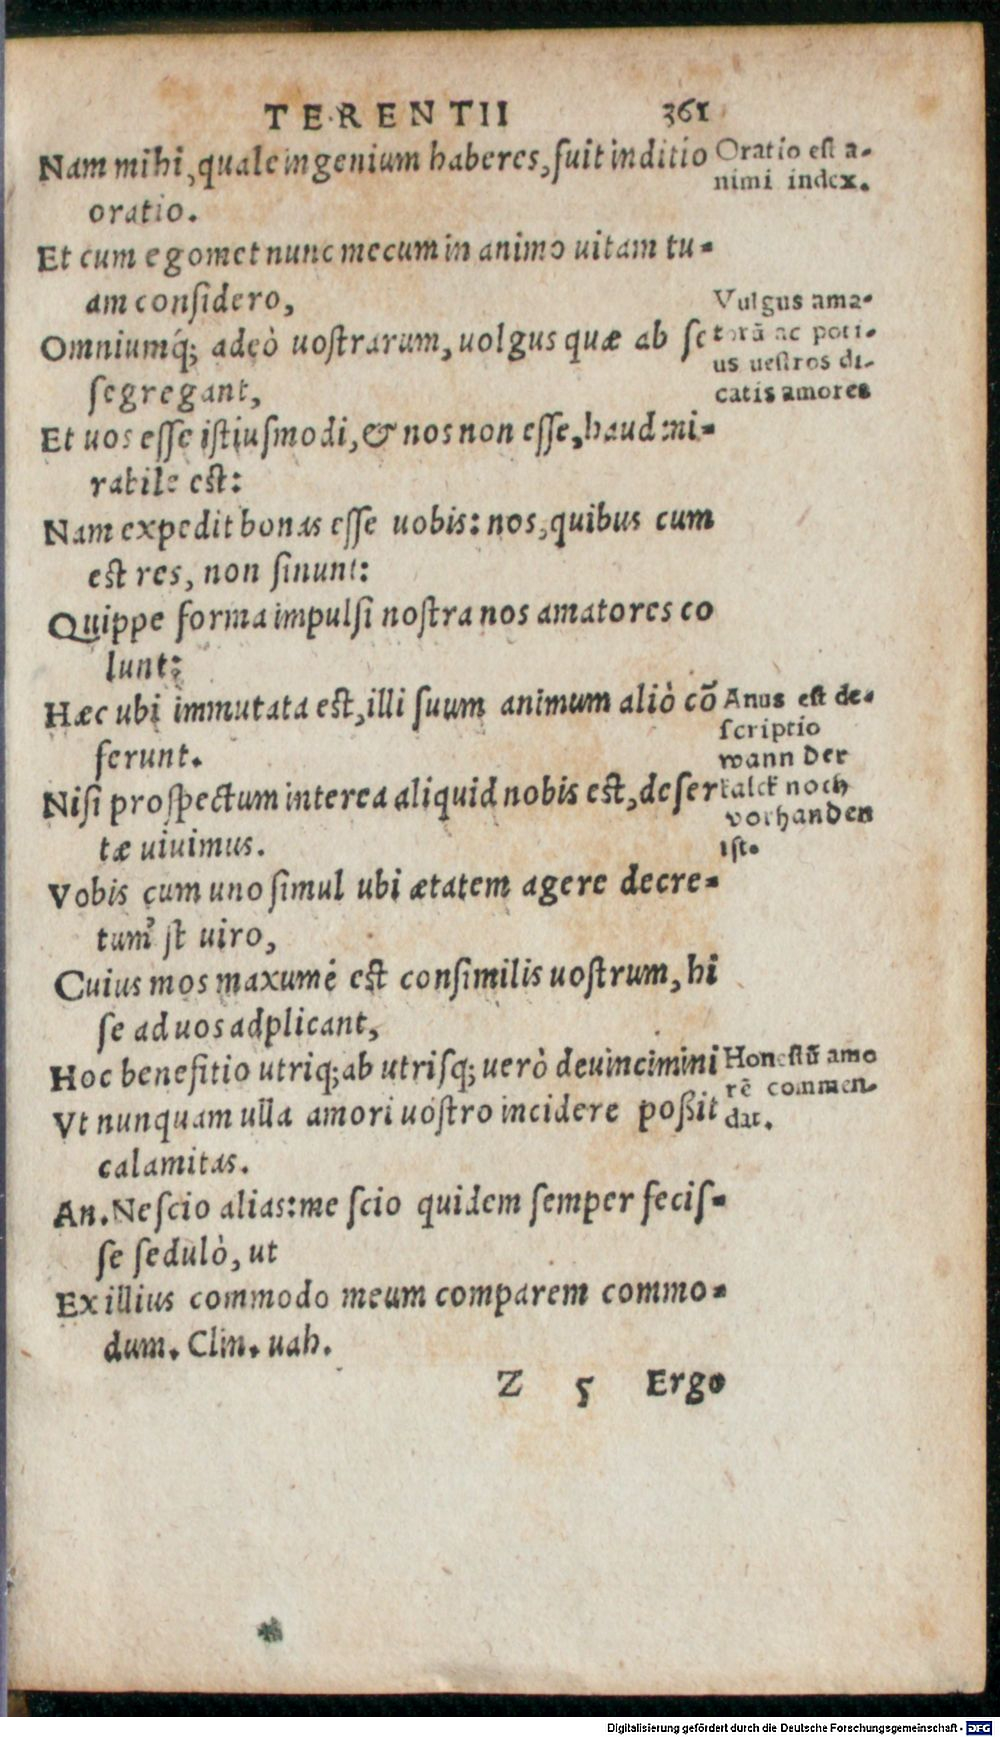 TERENTII 361
Nam mihi, quale ingenium haberes, fuit inditio
oratio.
Et cum egomet nunc mecum in animo uitam tu-
am considero,
Omniumq́; adeò uostrarum, uolgus quæ ab se
segregant,
Et uos esse istiusmodi, & nos non esse, haud mi-
rabile est:
Nam expedit bonas esse uobis: nos, quibus cum
est res, non sinunt:
Quippe forma impulsi nostra nos amatores co
lunt:
Hæc ubi immutata est, illi suum animum aliò cõ
ferunt.
Nisi prospectum interea aliquid nobis est, deser
tæ uiuimus.
Vobis cum uno simul ubi ætatem agere decre-
tum' st uiro,
Cuius mos maxumè est consimilis uostrum, hi
se ad uos adplicant,
Hoc benefitio utriq; ab utrisq; uerò deuincimini
Vt nunquam ulla amori uostro incidere poßit
calamitas.
An. Nescio alias: me scio quidem semper fecis-
se sedulò, ut
Ex illius commodo meum comparem commo-
dum. Clin. uah.
Z 5 Ergo
Oratio est a-
nimi index.
Vulgus ama-
torũ ac poti-
us uestros di-
catis amores
Anus est de-
scriptio
wann der
kalck noch
vorhanden
ist.
Honestũ amo
rẽ commen-
dat.
Digitalisierung gefördert durch die Deutsche Forschungsgemeinschaft - DFG